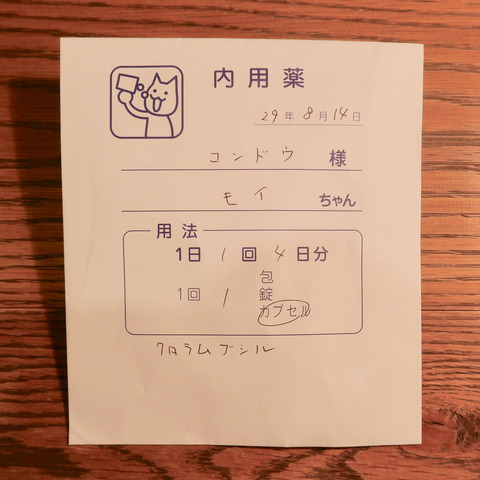 内用薬
29年8月14日
コンドウ 様
モイ ちゃん
用法
1日 1 回 4 日分
包
1回 1 錠
カプセル
クロラムブシル